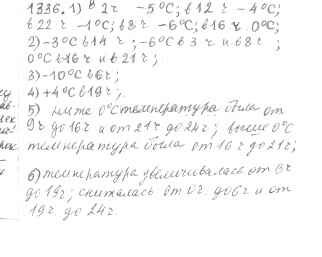 1336. 1) В 2ч -5°С; в 12 ч -4°С;
в 22 ч -1°С; в 8ч -6°С; в 16 ч 0°С;
2) -3°С в 14 ч ; -6°С в 3 ч и в 8ч ;
0°С в 16 ч и в 21ч ;
3) -10°С в 6ч ;
4) +4°С в 19ч ;
5) ниже 0°С температура была от
0ч до 16ч и от 21ч до 24ч ; выше 0°С
температура была от 16 ч до 21ч ;
6) температура увеличивалась от 6ч
до 19ч ; снижалась от 0ч. до 6ч и от
19ч. до 24ч.